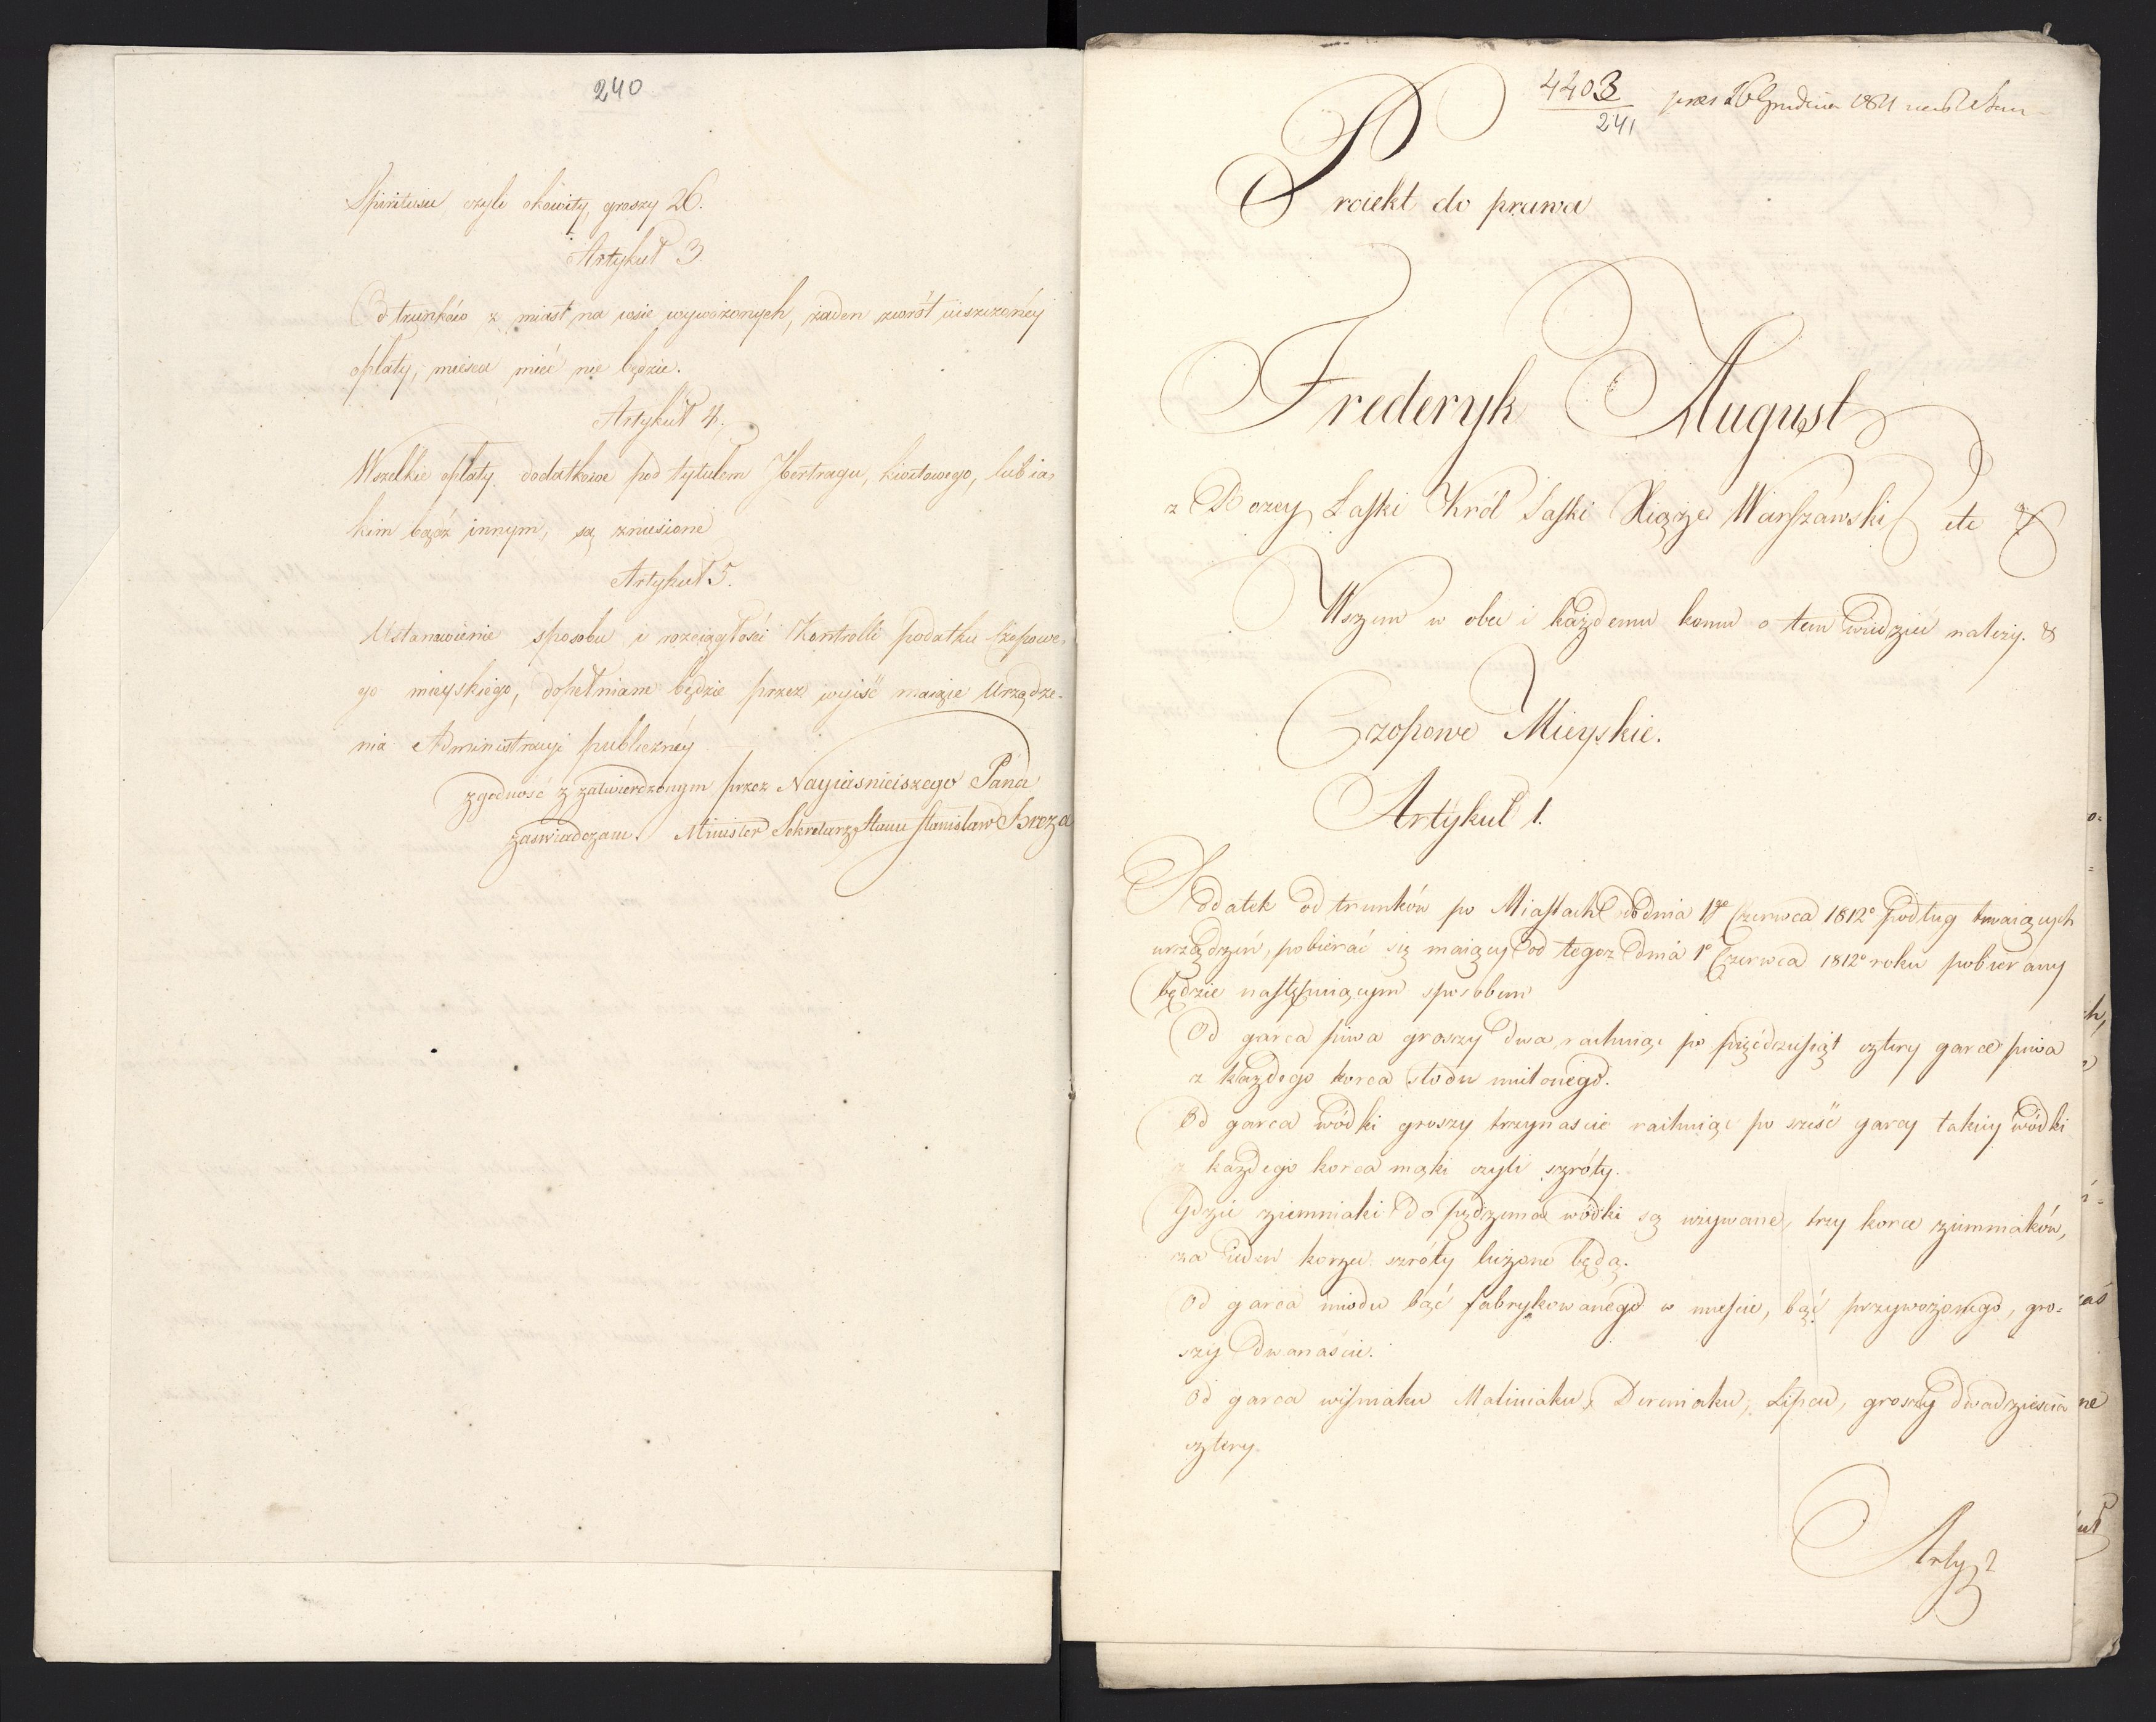 240
Spiritusu czyli okowity, groszy 26.
Artykuł 3.
Od trunków z miast na wsie wywożonych, żaden zwrót uiszczonéy
opłaty, mieysca mieć nie będzie.
Artykuł 4.
Wszelkie opłaty dodatkowe pod tytułem Hertragu, kwitowego, lub ia,
kim bądź innym, są zniesione
Artykuł 5.
Ustanowienie sposobu i rozciągłości Kontrolli podatku Czopowe,
go mieyskiego, dopełniane będzie przez wyiść maiące Urządze-
nia Administracyi publicznéy
zgodność z zatwierdzonym przez Nayiasnieiszego Pana
zaswiadczam. Minister Sekretarz Stanu Stanisław Breza
4403
241
praes 26 Grudnia 1811
Proiekt do prawa
Frederyk August
z Bożey Łaski Król Saski Xiąże Warszawski etc &
Wszem w obec i każdemu komu o tem wiedzieć należy. &
Czopowe Mieyskie.
Artykuł 1.
Podatek od trunków po Miastach do dnia 1go Czerwca 1812o podług trwaiących
urządzeń, pobierać się maiący od tegoz dnia 1o Czerwca 1812o roku pobierany
będzie następuiącym sposobem
Od garca piwa groszy dwa, rachuiąc po pięćdziesiąt cztery garce piwa
z każdego korca słodu mielonego.
Od garca wódki groszy trzynascie rachuiąc po sześć garcy takiey wódki
z każdego korca mąki czyli szróty.
Gdzie ziemniaki do pędzenia wódki są używane, trzy korce ziemniaków,
za ieden korzec szróty liczone będą.
Od garca miodu bąć fabrykowanego w mieście, bąć przywożonego, gro=
szy dwanaście.
Od garca wiśniaku Maliniaku, Dereniaku, Lipcu, groszy dwadzieścia
cztery.
Arty 2